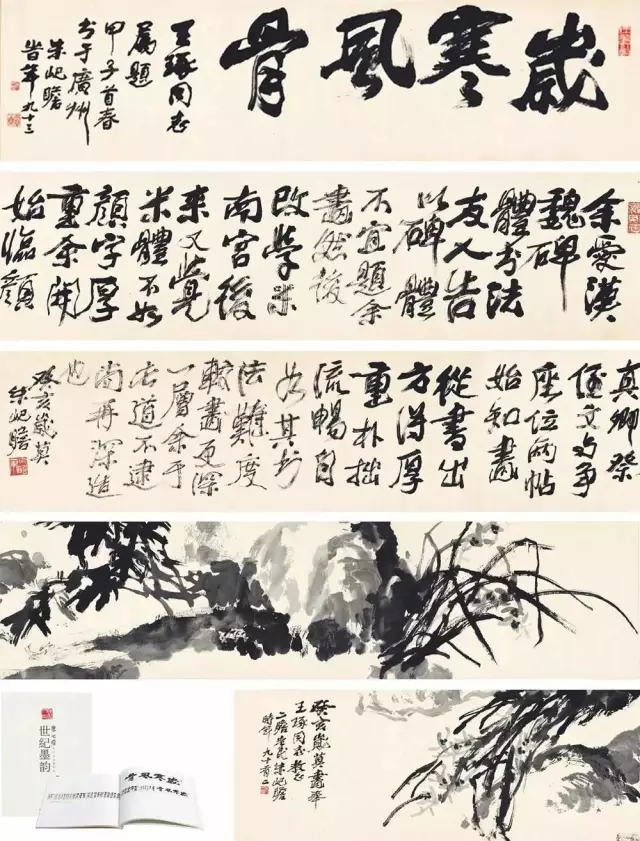 歲寒風骨
王琢同志
屬題
甲子首春
书于廣州
朱屺瞻
旹年九十三
余愛漢
魏碑
體书法
友人告
以碑體
不宜題余
畫然後
改學米
南宮後
来又覺
米體不如
顏字厚
重余開
始臨顏
真卿祭
侄文与争
座位两帖
始知畫
從書出
方得厚
重朴拙
流暢自
如其行
法難度
較畫更深
一層余于
尚再深造
也
癸亥歲莫
朱屺瞻
癸亥歲莫畫奉
王琢同志教正
二瞻老民朱屺瞻
時年九十有二
世纪墨韵
骨風寒歲